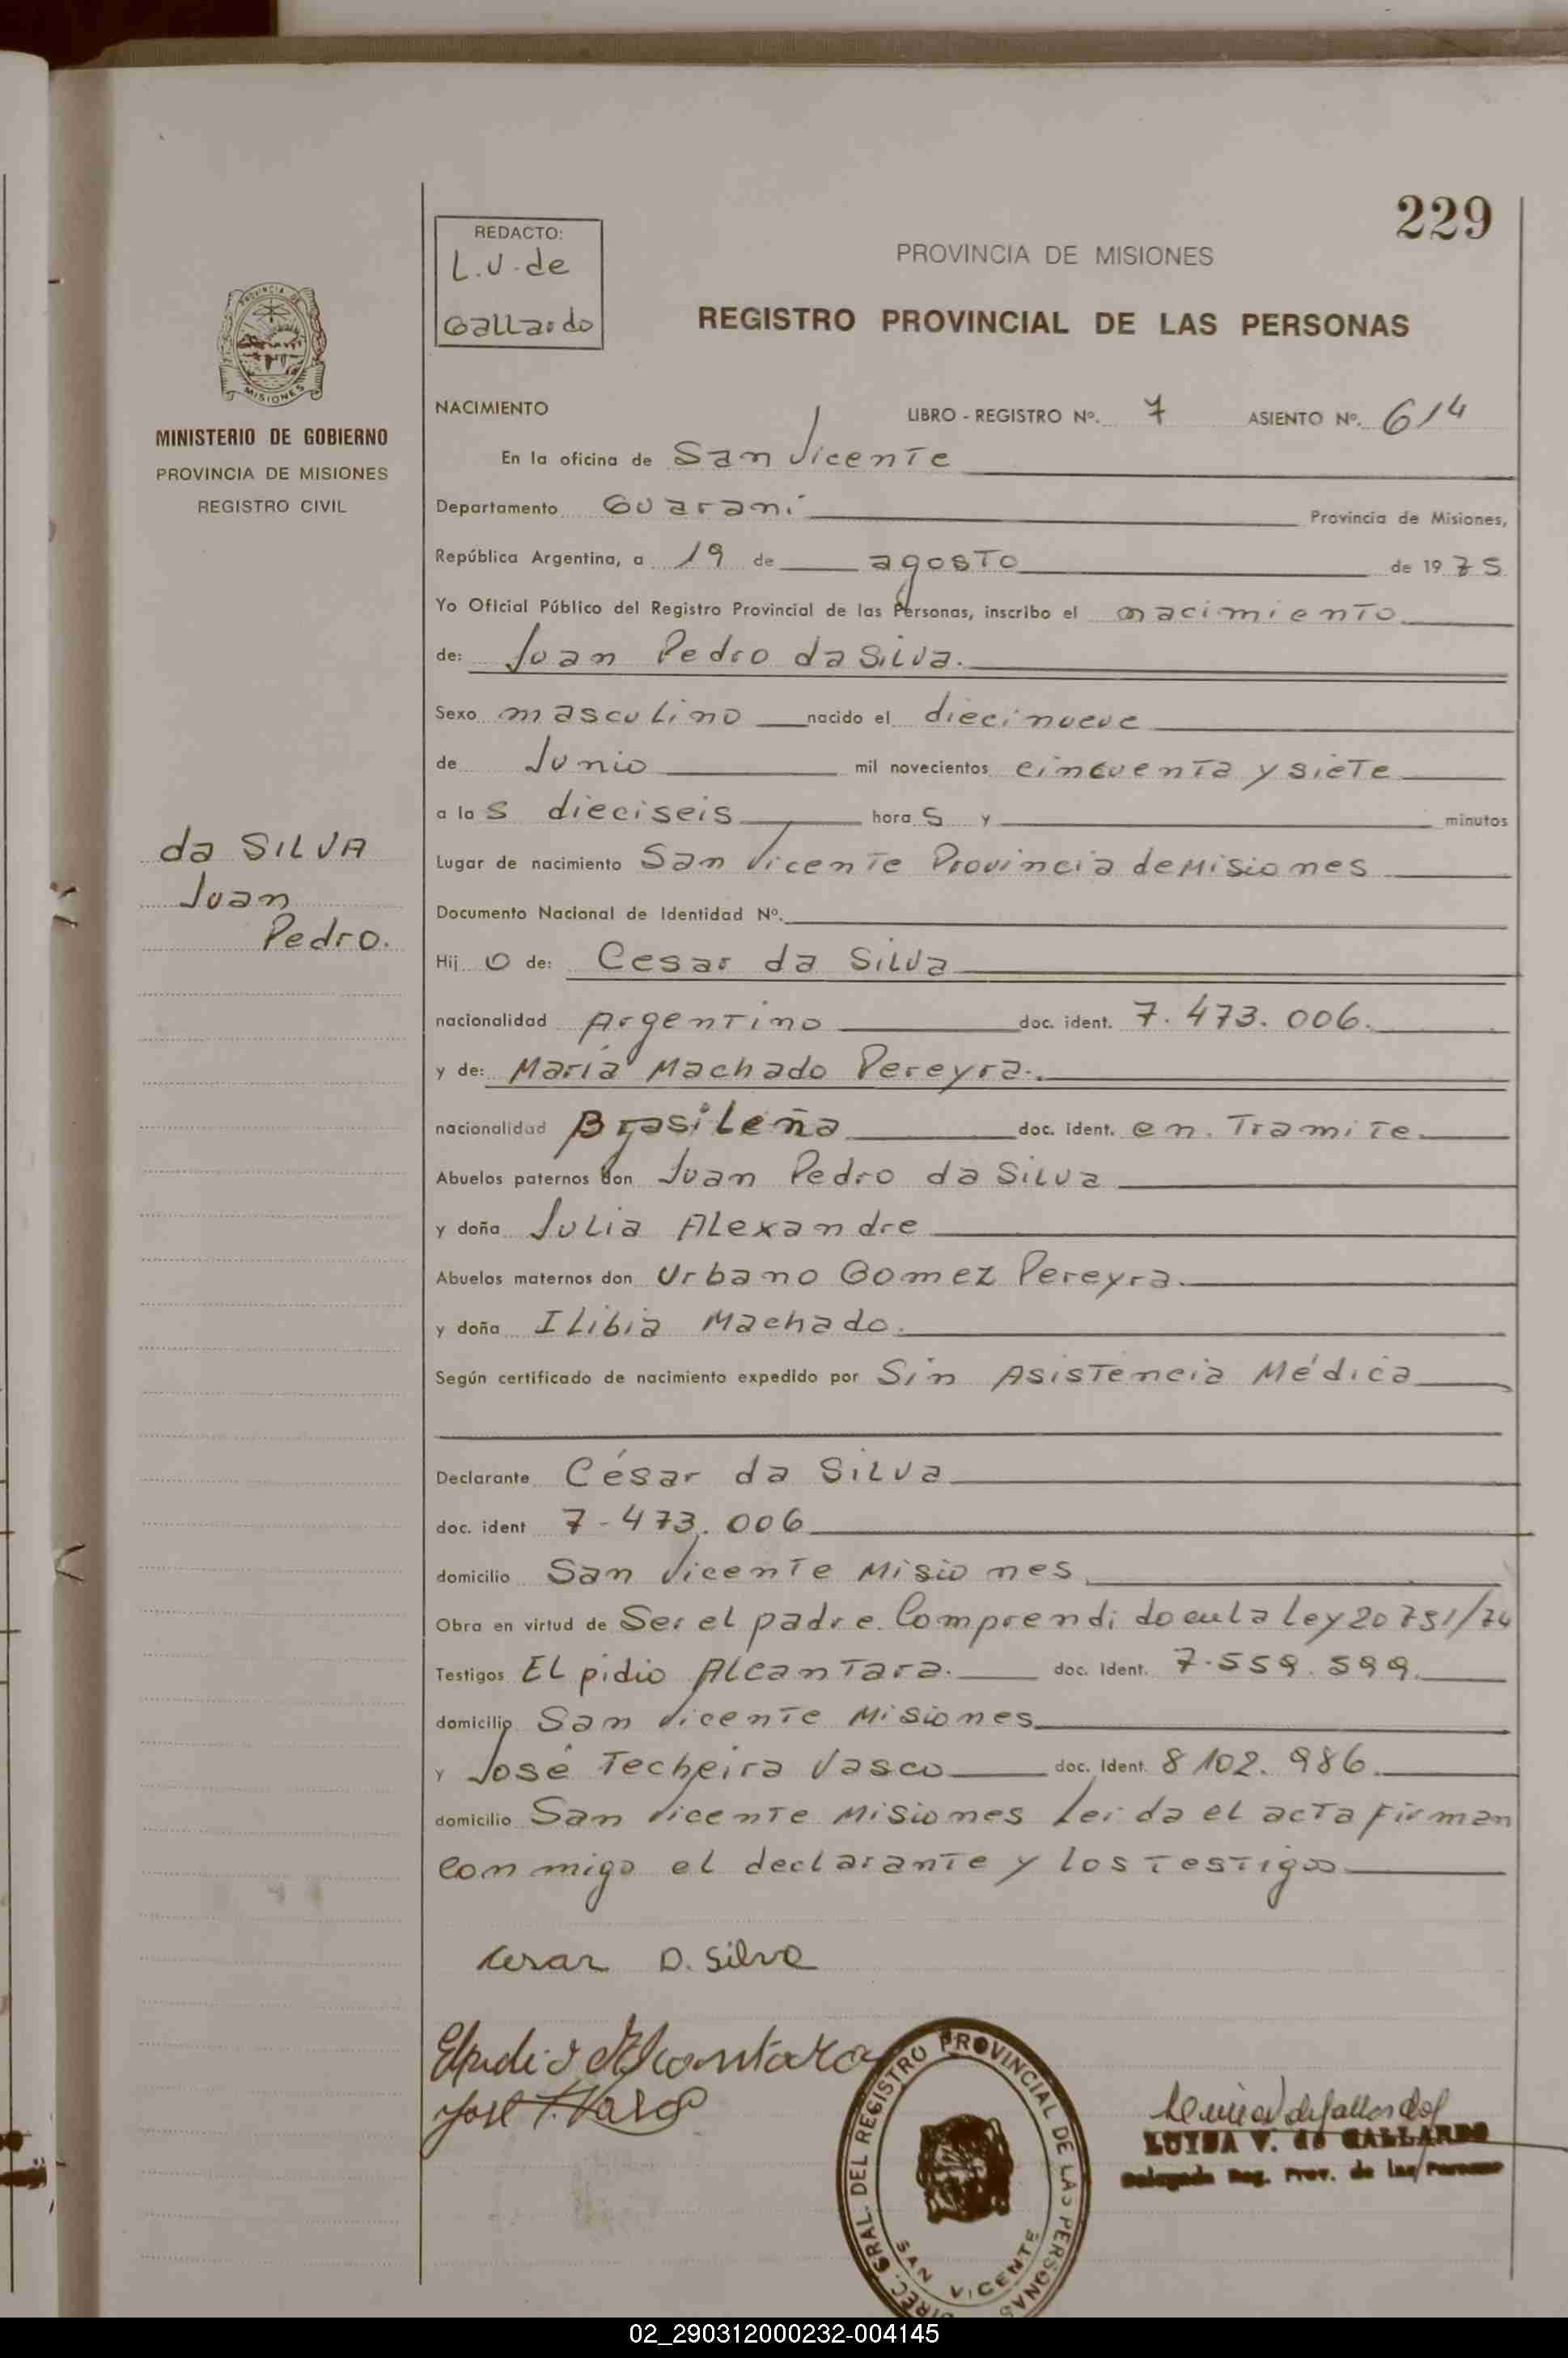 229
REDACTO:
L.V. de
Gallardo
PROVINCIA DE MISIONES
REGISTRO PROVINCIAL DE LAS PERSONAS
PROVINCIA DE
MISIONES
MINISTERIO DE GOBIERNO
PROVINCIA DE MISIONES
REGISTRO CIVIL
da SILVA
Juan
Pedro.
NACIMIENTO LIBRO - REGISTRO Nº. 7 ASIENTO Nº. 614
En la oficina de San Vicente
Departamento Guaraní Provincia de Misiones,
República Argentina, a 19 de agosto de 1975
Yo Oficial Público del Registro Provincial de las Personas, inscribo el nacimiento
de: Juan Pedro da Silva.
Sexo masculino nacido el diecinueve
de Junio mil novecientos cincuenta y siete
a las dieciseis horas y minutos
Lugar de nacimiento San Vicente Provincia de Misiones
Documento Nacional de Identidad Nº.
Hijo de: Cesar da Silva
nacionalidad Argentino doc. ident. 7.473.006.
y de: María Machado Pereyra.
nacionalidad Brasileña doc. ident. en Tramite
Abuelos paternos don Juan Pedro da Silva
y doña Julia Alexandre
Abuelos maternos don Urbano Gomez Pereyra.
y doña Ilibia Machado.
Según certificado de nacimiento expedido por Sin Asistencia Médica
Declarante César da Silva
doc. ident 7-473.006
domicilio San Vicente Misiones
Obra en virtud de Ser el padre. Comprendido en la Ley 20751/74
Testigos Elpidio Alcantara. doc. ident. 7.559.599.
domicilio San Vicente Misiones
y José Techeira Vasco doc. ident. 8102.986.
domicilio San Vicente Misiones leida el acta firman
conmigo el declarante y los testigos
Cesar D. Silva
Elpidio Alcantara
José T. Vasco
DIREC. GRAL. DEL REGISTRO PROVINCIAL DE LAS PERSONAS
SAN VICENTE
LUISA V. de GALLARDO
Delegada Reg. Prov. de las Personas
02_290312000232-004145